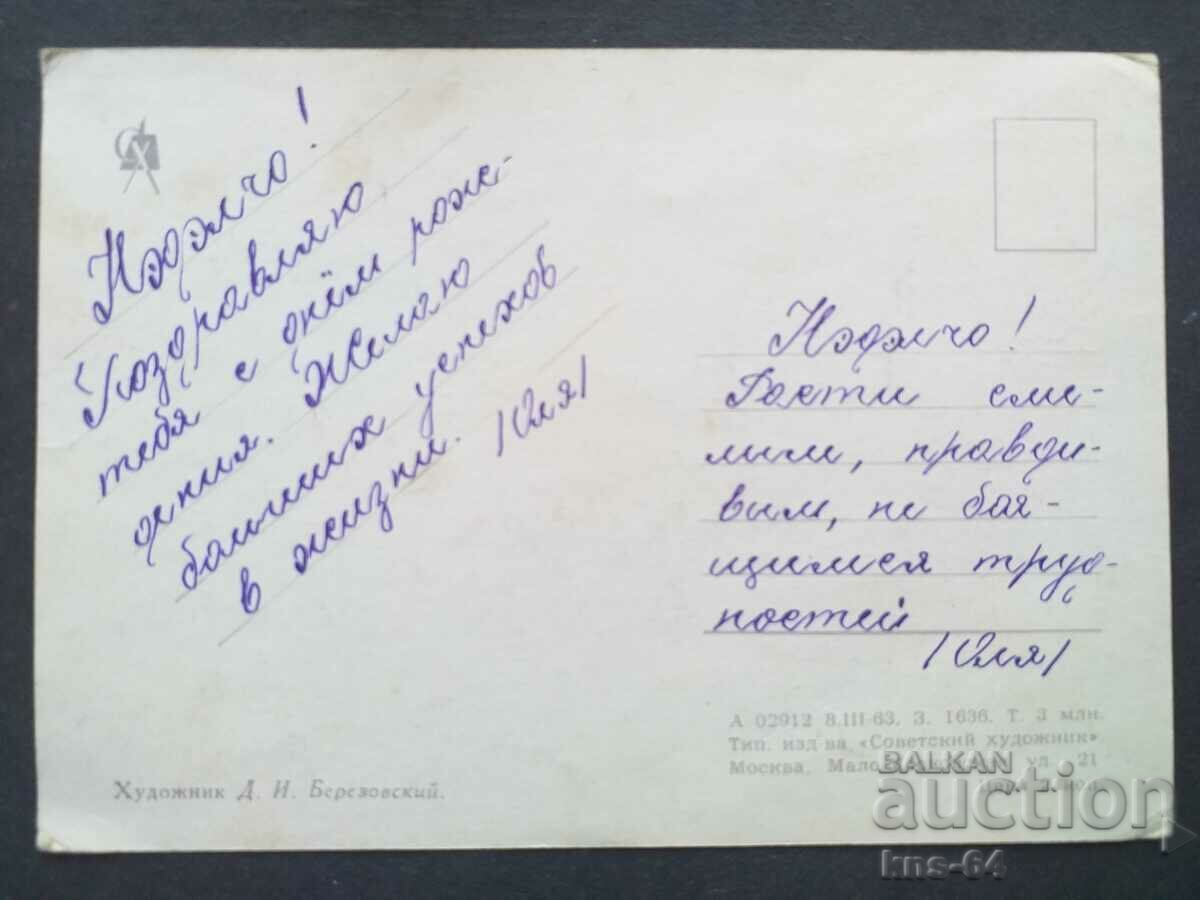 Нэдэлчо!
Поздравляю
тебя с днём рож-
дения. Желаю
больших успехов
в жизни. /Оля/
Нэдэлчо!
Расти сме-
лым, правди-
вым, не боя-
щимся труд-
ностей
/Оля/
А 02912 8.III-63. З. 1636. Т. 3 млн.
Тип. изд-ва «Советский художник».
Москва, ул. 21
Художник Д. И. Березовский.
BALKAN
auction
kns-64